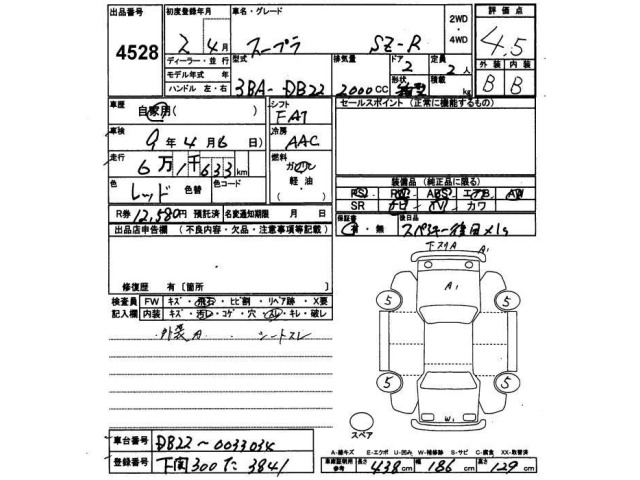 出品番号 4528
初度登録年月 2年 4月
車名・グレード スープラ SZ-R
2WD・4WD
評価点 4.5
ディーラー・並行
モデル年式 年
ハンドル 左・右
型式 3BA-DB22
排気量 2000CC
ドア 2
形状
定員 2人
積載 kg
外装 B 内装 B
車歴 自家用( )
シフト FAT
セールスポイント(正常に機能するもの)
車検 9年 4月 6日)
冷房 AAC
走行 6万1千633km
燃料 ガソリン 軽油
色 レッド 色替 色コード
装備品(純正品に限る)
PS PW ABS エアB AW
SR ナビ TV カワ
R券 12,580円 預託済 名変通知期限 月 日
保証書 有・無 後日品 スペアキー後日×1ヶ
出品店申告欄(不良内容・欠品・注意事項等記載)
下スリA A1
A1
修復歴 有〔箇所 〕
検査員記入欄 FW キズ・飛石・ヒビ割・リペア跡・X要
内装 キズ・汚レ・コゲ・穴・スレ・キレ・破レ
外装A シートスレ
5 5
5 5
W1
スペア
車台番号 DB22~0033034
登録番号 下関300た3841
A-線キズ E-エクボ U-凹み W-補修跡 S-サビ C-腐食 XX-取替済
車庫証明用参考 長さ 438cm 幅 186cm 高さ 129cm